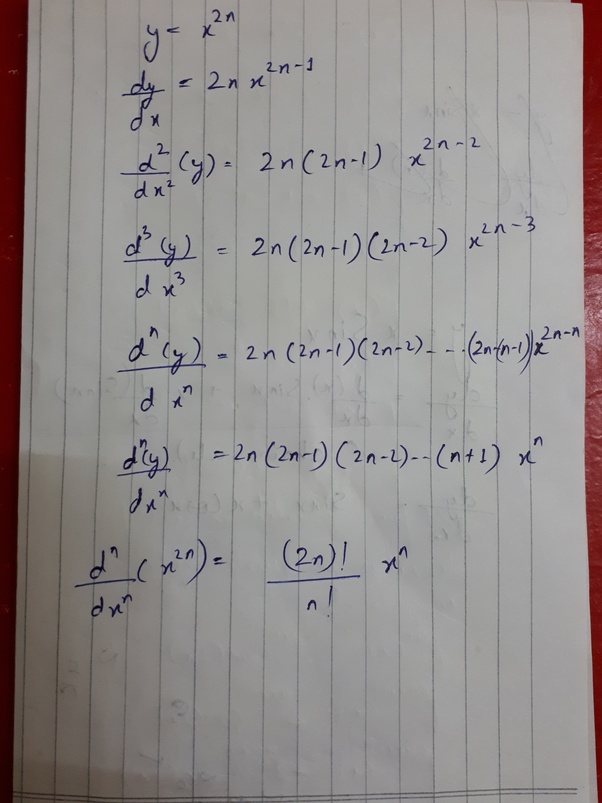 y = x^{2n}
dy/dx = 2n x^{2n-1}
d^2/dx^2 (y) = 2n(2n-1) x^{2n-2}
d^3(y)/dx^3 = 2n(2n-1)(2n-2) x^{2n-3}
d^n(y)/dx^n = 2n(2n-1)(2n-2)--..(2n-(n-1))x^{2n-n}
d^n(y)/dx^n = 2n(2n-1)(2n-2)--(n+1) x^n
d^n/dx^n (x^{2n}) = (2n)!/n! x^n